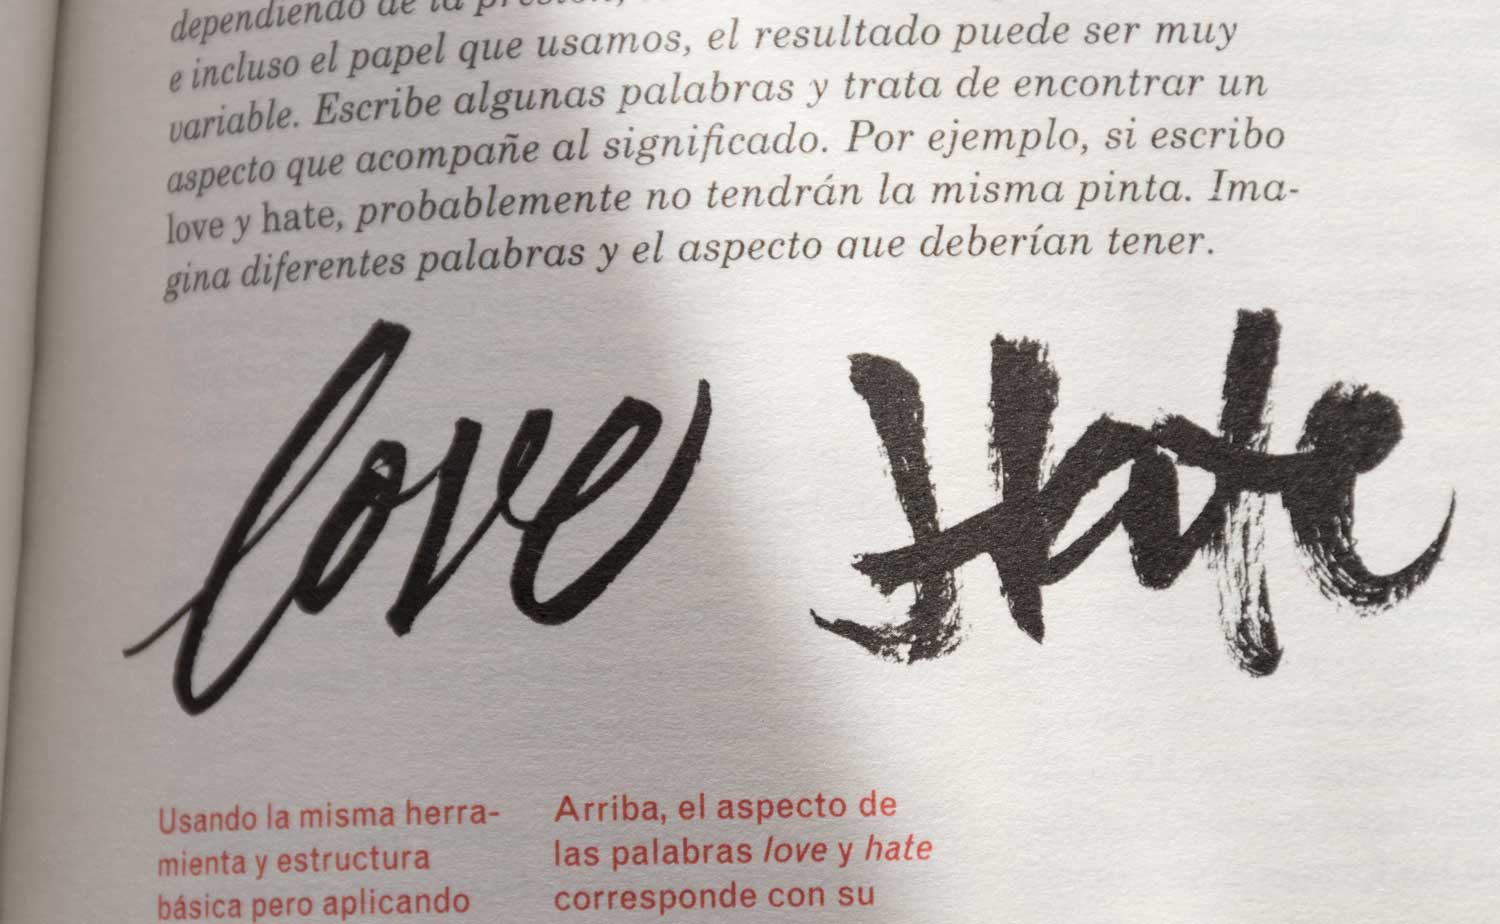 dependiendo de la presión,
e incluso el papel que usamos, el resultado puede ser muy
variable. Escribe algunas palabras y trata de encontrar un
aspecto que acompañe al significado. Por ejemplo, si escribo
love y hate, probablemente no tendrán la misma pinta. Ima-
gina diferentes palabras y el aspecto que deberían tener.
love Hate
Usando la misma herra-
mienta y estructura
básica pero aplicando
Arriba, el aspecto de
las palabras love y hate
corresponde con su